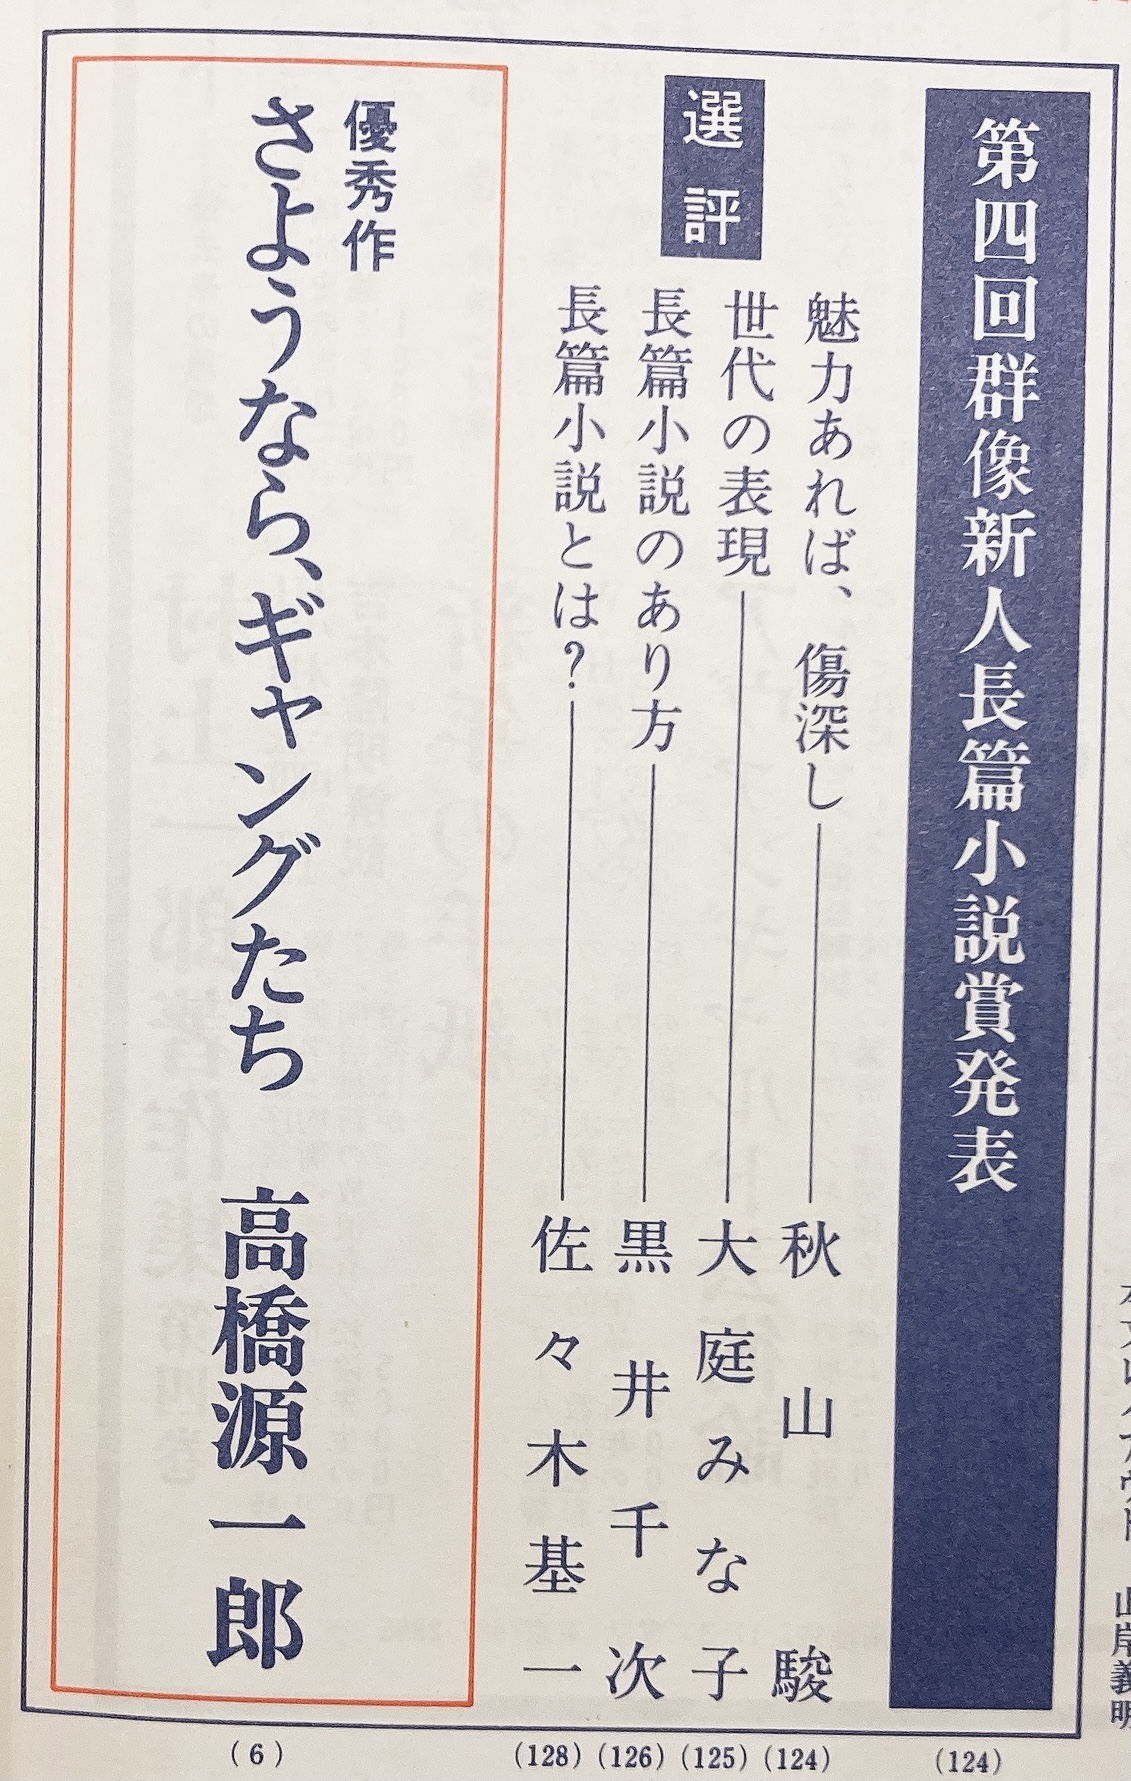 第四回群像新人長篇小説賞発表 (124)
選評
魅力あれば、傷深し――秋山駿 (124)
世代の表現――大庭みな子 (125)
長篇小説のあり方――黒井千次 (126)
長篇小説とは？――佐々木基一 (128)
優秀作
さようなら、ギャングたち 高橋源一郎 (6)